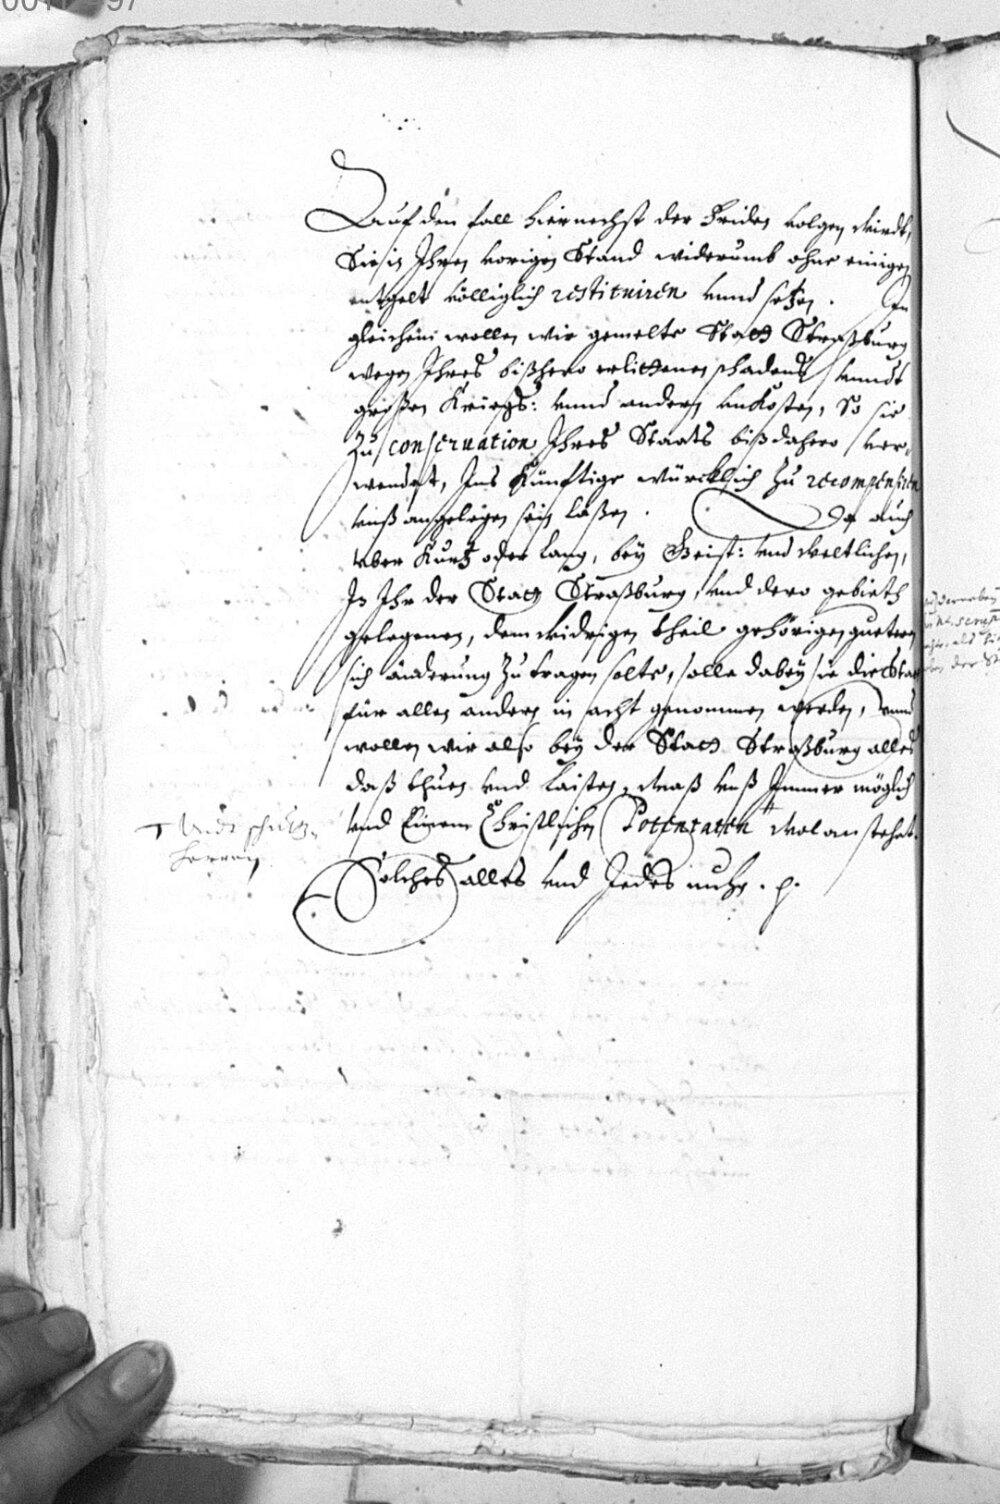 Auf den fall hiernechst der Friden volgen wirdt,
Sie in Ihren vorigen Stand widerumb ohne einigen
entgelt völliglich restituiren vnnd setzen. In
gleichem wollen wir gemelte Statt Straßburg
wegen Ihres bißhero erlittenen schadens vnndt
großen Kriegs: vnnd andern vnkosten, So sie
Zu conseruation Ihres Staats biß dahero ver-
wendet, Ins Künftige würcklich zu recompensiren
vnß angelegen sein laßen. Da auch
vber Kurtz oder lang, bey Geist: vnd weltlichen,
In Ihr der Statt Straßburg, vnd dero gebieth
gelegenen, dem widrigen theil gehörigen guetern
sich änderung Zu tragen solte, solle dabey sie die Statt
für allen andern in acht genommen werden, vnnd
wollen wir also bey der Statt Straßburg alles
daß thuen vnd laisten, waß vnß Immer möglich
vnd Einem Christlichen Potentaten wol anstehet.
Solches alles vnd Jedes
vndt schutz-
herren